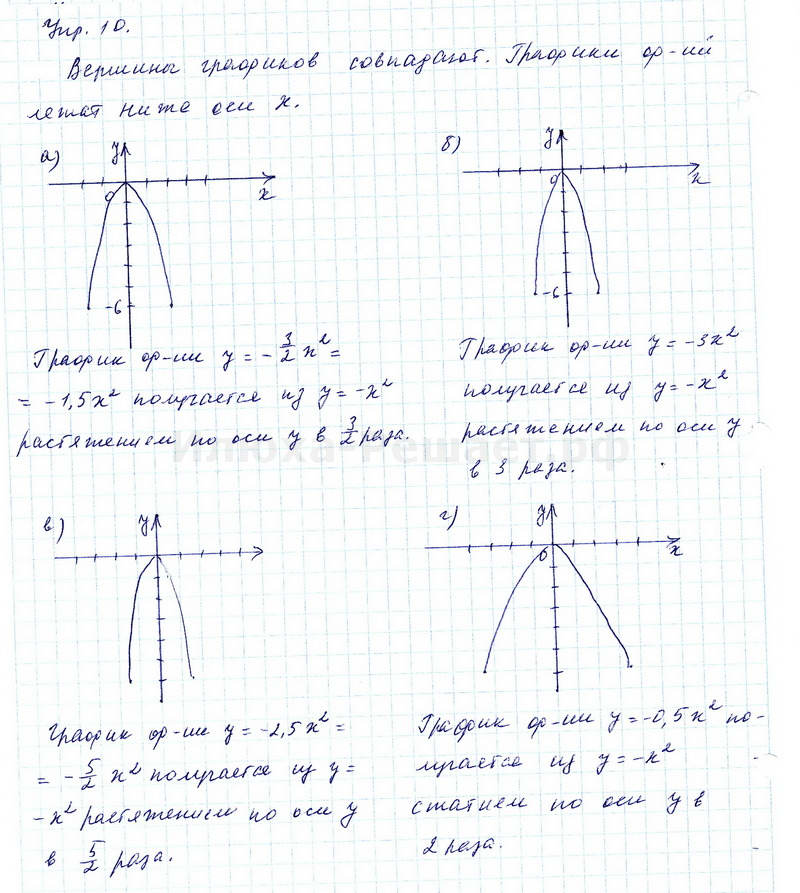 Упр. 10.
Вершины графиков совпадают. Графики ф-ий
лежат ниже оси x.
а)
y
0
x
-6
б)
y
0
x
-6
График ф-ии y = -3/2 x² =
= -1,5x² получается из y = -x²
растяжением по оси y в 3/2 раза.
График ф-ии y = -3x²
получается из y = -x²
растяжением по оси y
в 3 раза.
Илюха-Решает.рф
в)
y
г)
y
0
x
График ф-ии y = -2,5x² =
= -5/2 x² получается из y =
-x² растяжением по оси y
в 5/2 раза.
График ф-ии y = -0,5x² по-
лучается из y = -x²
сжатием по оси y в
2 раза.